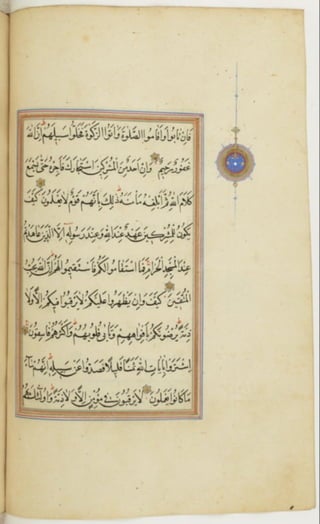 فَإِن تَابُوا وَأَقَامُوا الصَّلَوةَ وَآتَوُا الزَّكَوةَ فَخَلُّوا سَبِيلَهُمْ إِنَّ اللَّهَ
غَفُورٌ رَحِيمٌ وَإِنْ أَحَدٌ مِنَ الْمُشْرِكِينَ اسْتَجَارَكَ فَأَجِرْهُ حَتَّى يَسْمَعَ
كَلَامَ اللَّهِ ثُمَّ أَبْلِغْهُ مَأْمَنَهُ ذَلِكَ بِأَنَّهُمْ قَوْمٌ لَا يَعْلَمُونَ كَيْفَ
يَكُونُ لِلْمُشْرِكِينَ عَهْدٌ عِنْدَ اللَّهِ وَعِنْدَ رَسُولِهِ إِلَّا الَّذِينَ عَاهَدْتُمْ
عِنْدَ الْمَسْجِدِ الْحَرَامِ فَمَا اسْتَقَامُوا لَكُمْ فَاسْتَقِيمُوا لَهُمْ إِنَّ اللَّهَ يُحِبُّ
الْمُتَّقِينَ كَيْفَ وَإِنْ يَظْهَرُوا عَلَيْكُمْ لَا يَرْقُبُوا فِيكُمْ إِلًّا وَلَا
ذِمَّةً يُرْضُونَكُمْ بِأَفْوَاهِهِمْ وَتَأْبَى قُلُوبُهُمْ وَأَكْثَرُهُمْ فَاسِقُونَ
اشْتَرَوْا بِآيَاتِ اللَّهِ ثَمَنًا قَلِيلًا فَصَدُّوا عَنْ سَبِيلِهِ إِنَّهُمْ سَاءَ
مَا كَانُوا يَعْمَلُونَ لَا يَرْقُبُونَ فِي مُؤْمِنٍ إِلًّا وَلَا ذِمَّةً وَأُولَئِكَ هُمُ